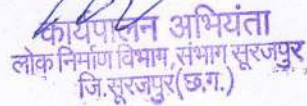 कार्यपालन अभियंता
लोक निर्माण विभाग, संभाग सूरजपुर
जि.सूरजपुर(छ.ग.)